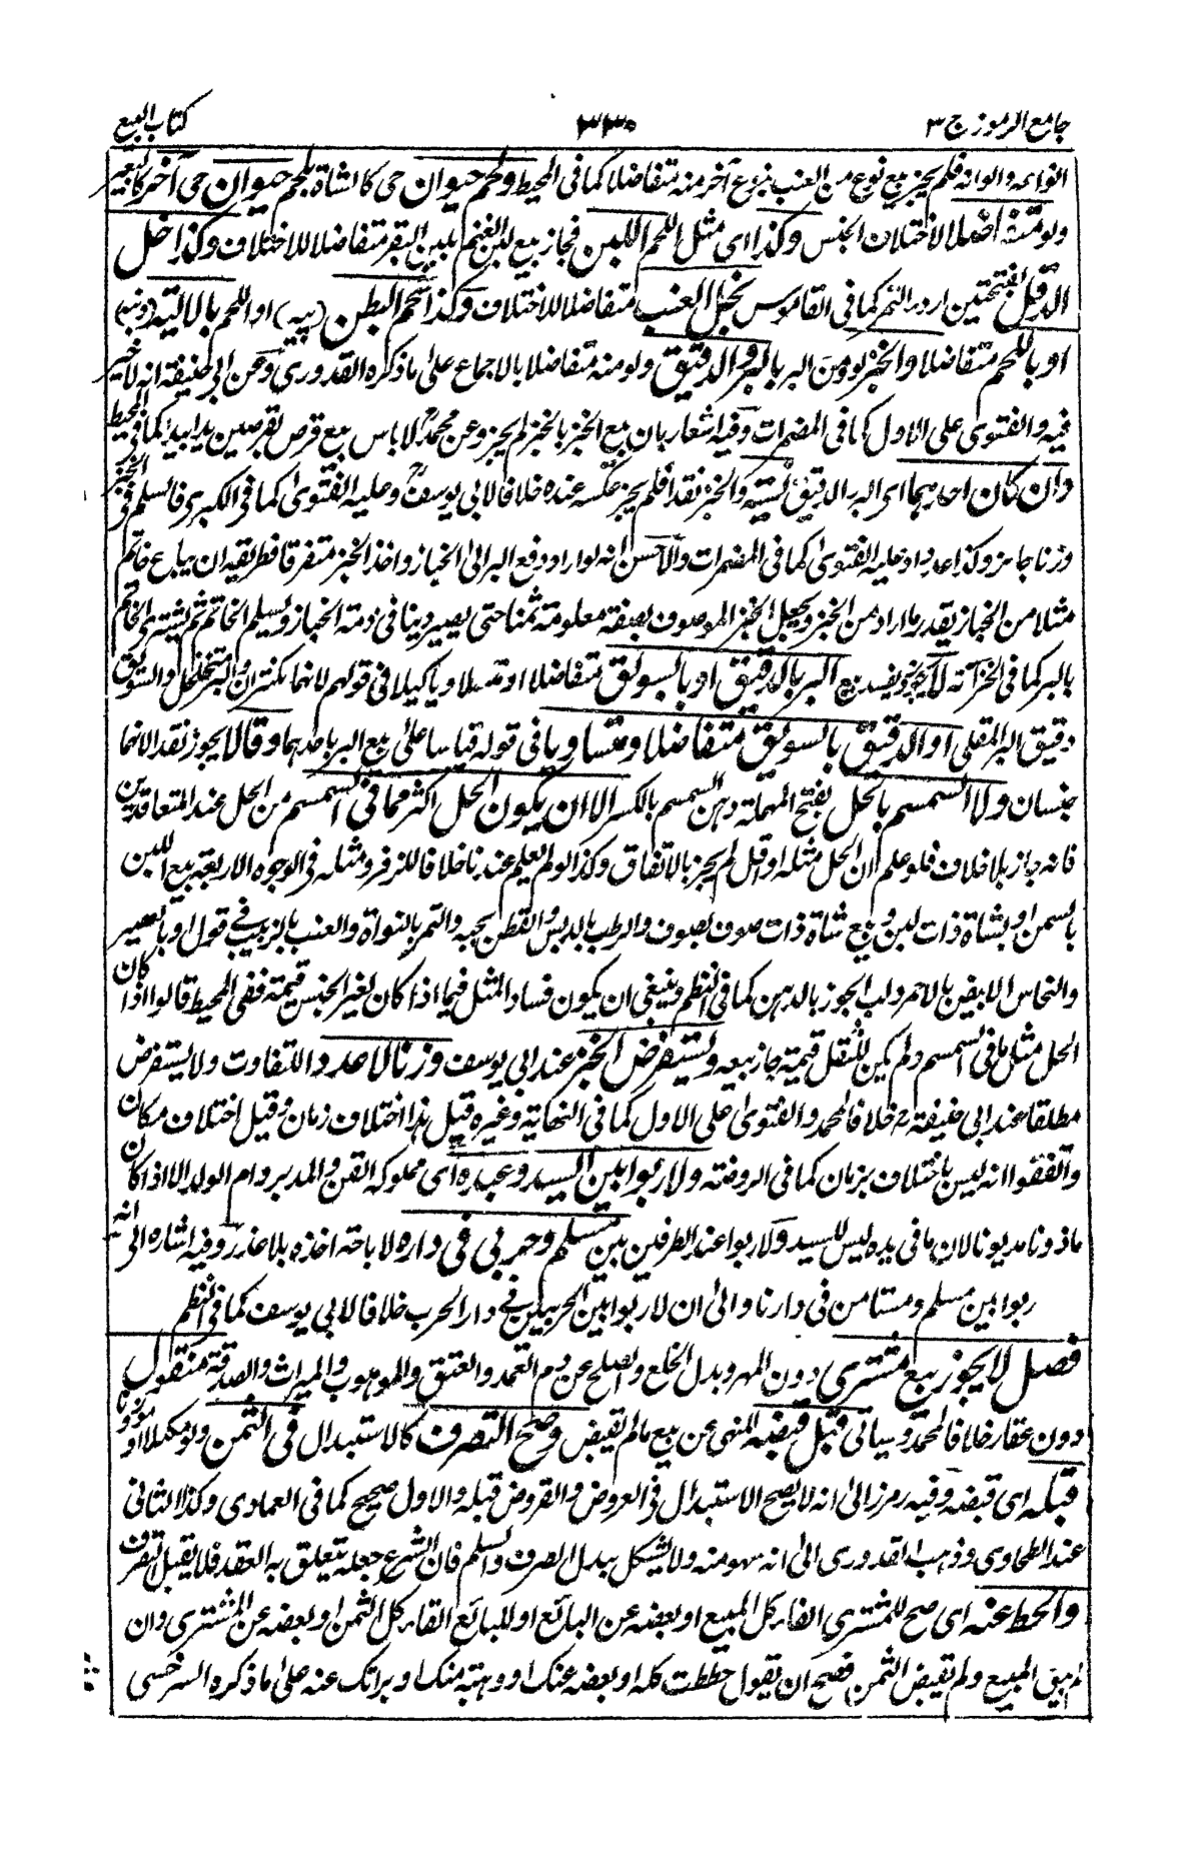 جامع الرموز ج ٣
٣٣٠
كتاب البيع
الوانه فلم يجز بيع نوع من العنب بنوع آخر منه متفاضلا كما فى المحيط ولحم حيوان حى كالشاة بلحم حيوان حى آخر كالبعير
ولو متفاضلا لاختلاف الجنس وكذا اى مثل اللحم اللبن فجاز بيع لبن الغنم بلبن البقر متفاضلا للاختلاف وكذا خل
الدقل بفتحتين اردء التمر كما فى القاموس بخل العنب متفاضلا للاختلاف وكذا شحم البطن (پيه) او اللحم بالالية (دنبه)
او باللحم متفاضلا والخبز ولو من البر بالبر والدقيق ولو منه متفاضلا بالاجماع على ما ذكره القدورى وعن ابى حنيفة انه لا خير
فيه والفتوى على الاول كما فى المضمرات وفيه اشعار بان بيع الخبز بالخبز لم يجز وعن محمد لا باس ببيع قرص بقرصين يدا بيد كما فى المحيط
وان كان احدهما اى البر الدقيق نسيئة والخبز نقدا فلم يجز عكسه عنده خلافا لابى يوسف وعليه الفتوى كما فى الكبرى فالسلم فى الخبز
وزنا جائز وكذا عددا وعليه الفتوى كما فى المضمرات والاحسن انه لو اراد دفع البر الى الخباز واخذ الخبز متفرقا فطريقه ان يباع خاتم
مثلا من الخباز بقدر ما اراد من الخبز ويجعل الخبز الموصوف بصفة معلومة ثمنا حتى يصير دينا فى ذمة الخباز ويسلم الخاتم ثم يشترى الخاتم
بالبر كما فى الخزانة لا يجوز يفسد بيع البر بالدقيق او بالسويق متفاضلا او متساويا كيلا فى قولهم لانهما مكتنزان والبر متخلخل والسويق
دقيق البر المقلى او الدقيق بالسويق متفاضلا ومتساويا فى قوله قياسا على بيع البر باحدهما وقالا يجوز نقدا لانهما
جنسان ولا السمسم بالحل بفتح المهملة دهن السمسم بالكسر الا ان يكون الحل اكثر مما فى السمسم من الحل عند المتعاقدين
فانه جاز بلا خلاف فلو علم ان الحل مثله او اقل لم يجز بالاتفاق وكذا لو لم يعلم عندنا خلافا للزفر ومثله فى الوجوه الاربعة بيع اللبن
بالسمن او بشاة ذات لبن وبيع شاة ذات صوف بصوف والرطب بالدبس والقطن بحبه والتمر بالنواة والعنب بالزبيب فى قول او بالعصير
والنحاس الابيض بالاحمر ولب الجوز بالدهن كما فى النظم وينبغى ان يكون فساد المثل فيما اذا كان لغير الجنس قيمة ففى المحيط قالوا اذا كان
الحل مثل ما فى السمسم ولم يكن للثقل قيمة جاز بيعه ويستقرض الخبز عند ابى يوسف وزنا لا عددا للتفاوت ولا يستقرض
مطلقا عند ابى حنيفة خلافا لمحمد والفتوى على الاول كما فى النهاية وغيره قيل هذا اختلاف زمان وقيل اختلاف مكان
واتفقوا انه ليس باختلاف بزمان كما فى الروضة ولا ربوا بين السيد وعبده اى مملوكه القن والمدبر وام الولد الا اذا كان
ماذونا مديونا لان ما فى يده ليس للسيد ولا ربوا عند الطرفين بين مسلم وحربى فى داره لاباحة اخذه بلا عذر وفيه اشارة الى انه
ربوا بين مسلم ومستامن فى دارنا والى ان لا ربوا بين الحربيين فى دار الحرب خلافا لابى يوسف كما فى النظم
فصل لا يجوز بيع مشترى دون المهر وبدل الخلع والصلح عن دم العمد والعتق والموهوب والميراث والصدقة منقول
دون عقار خلافا لمحمد وسياتى قبل قبضه للنهى عن بيع ما لم يقبض وصح التصرف كالاستبدال فى الثمن ولو مكيلا او موزونا
قبله اى قبضه وفيه رمز الى انه لا يصح الاستبدال فى العروض والقروض قبله والاول صحيح كما فى العمادى وكذا الثانى
عند الطحاوى وذهب القدورى الى انه سهو منه ولا يشكل ببدل الصرف والسلم فان الشرع جعله يتعلق به العقد فلا يقبل التصرف
والحط عنه اى صح للمشترى القاء كل المبيع او بعضه عن البائع او للبائع القاء كل الثمن او بعضه عن المشترى وان
لم يبق المبيع ولم يقبض الثمن فصح ان يقول حططت كله او بعضه عنك او وهبته منك او براتك عنه على ما ذكره السرخسى